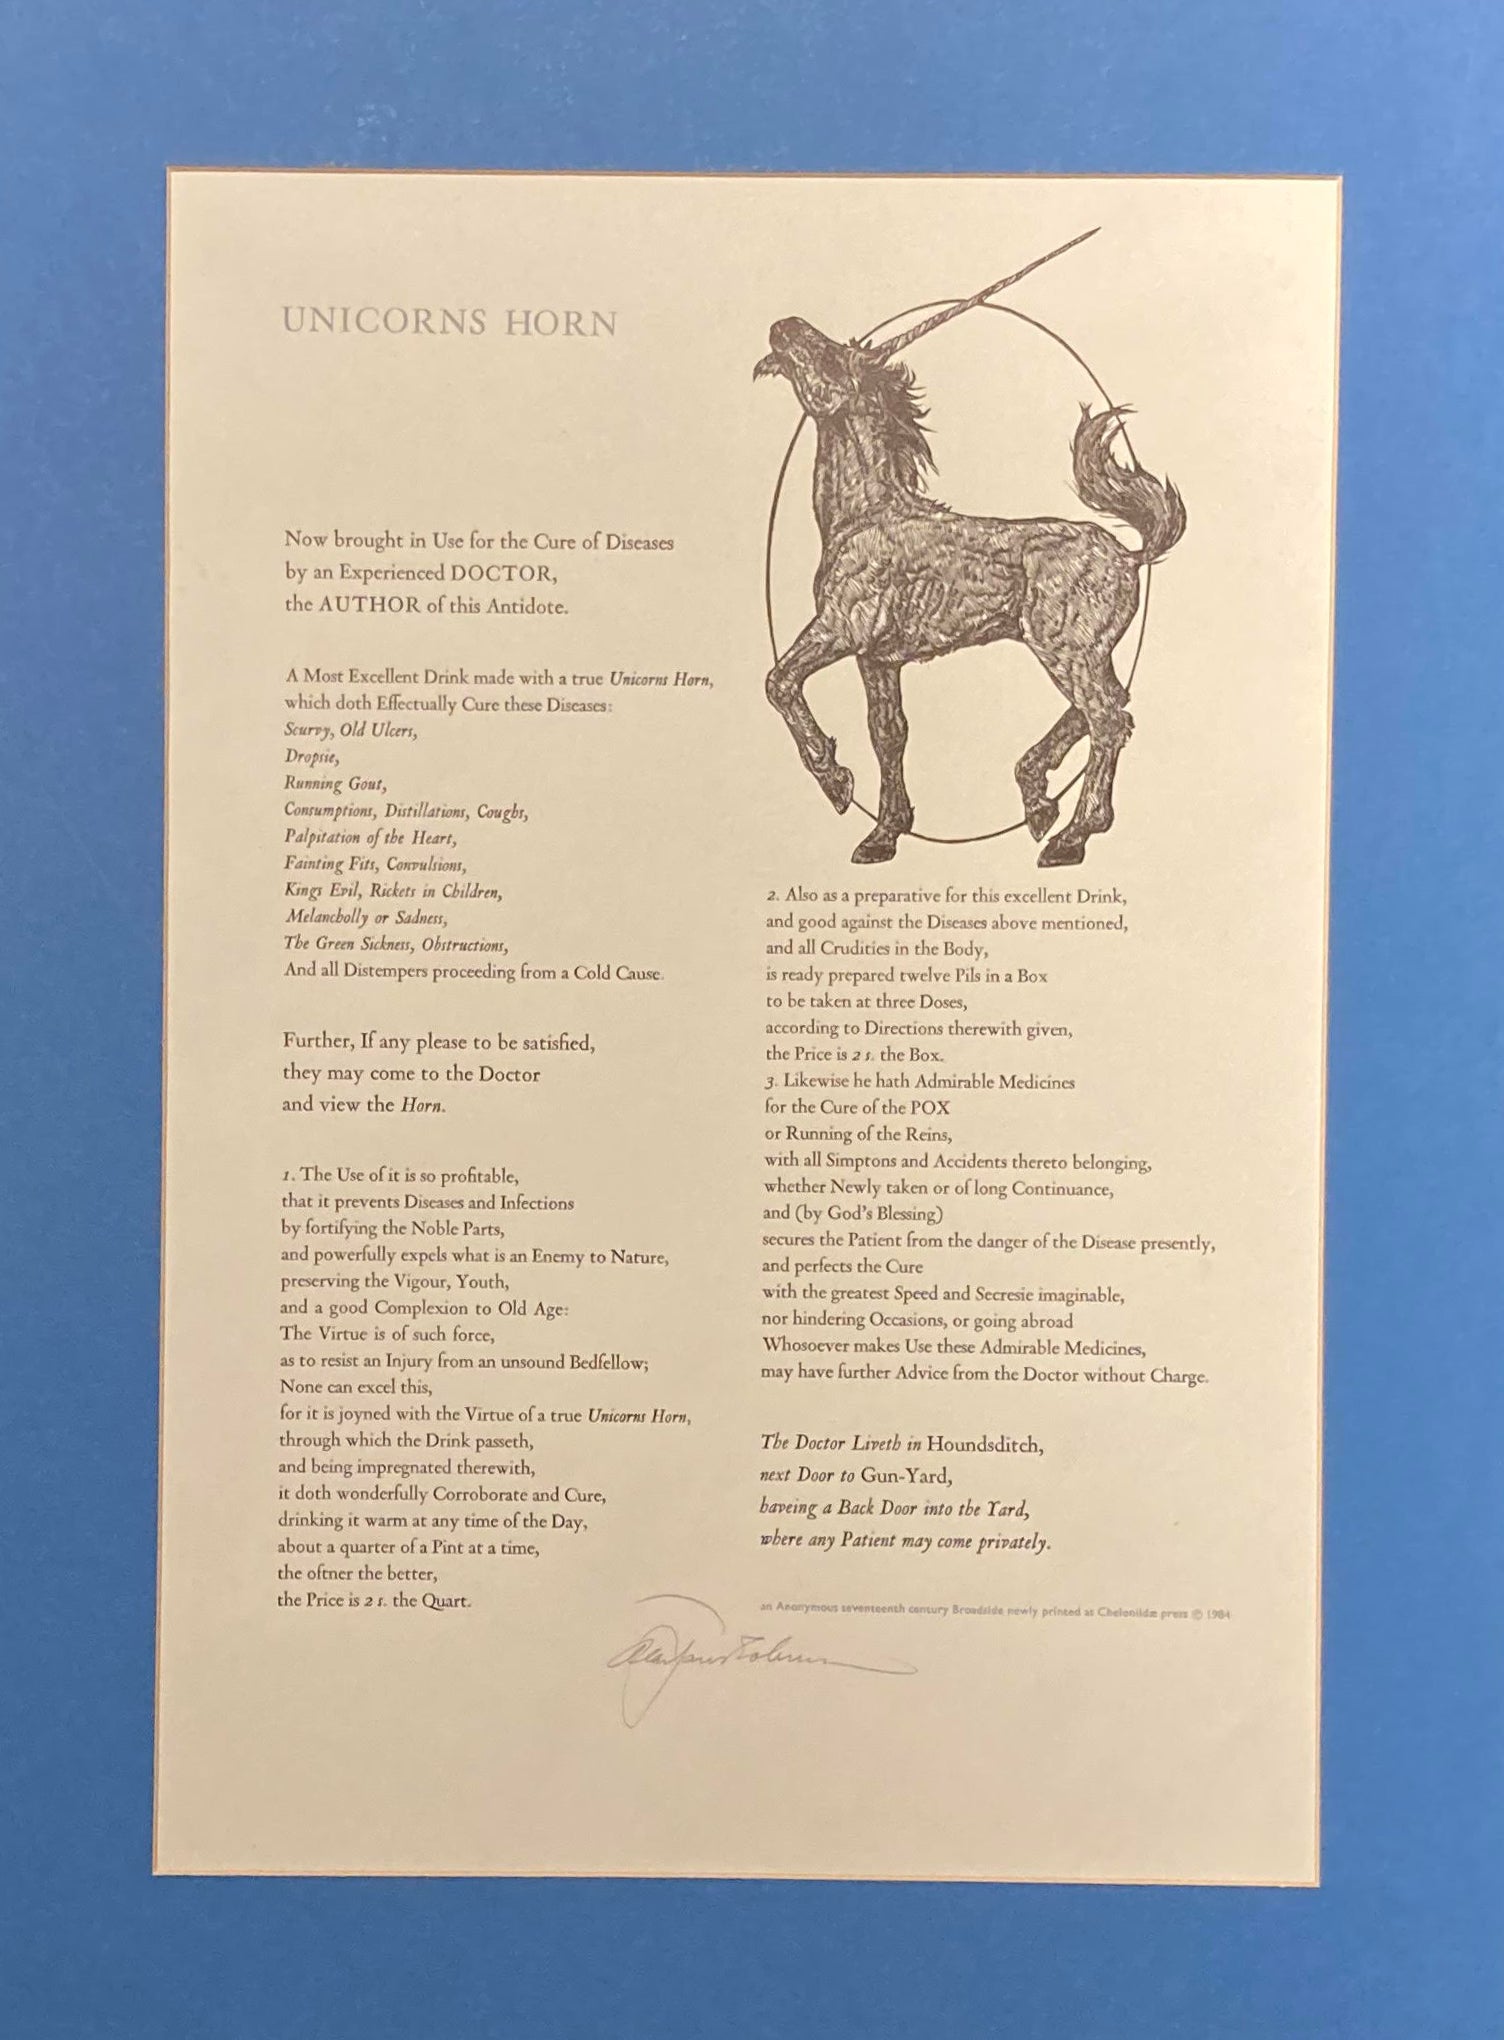 UNICORNS HORN
Now brought in Use for the Cure of Diseases
by an Experienced DOCTOR,
the AUTHOR of this Antidote.
A Most Excellent Drink made with a true Unicorns Horn,
which doth Effectually Cure these Diseases:
Scurvy, Old Ulcers,
Dropsie,
Running Gout,
Consumptions, Distillations, Coughs,
Palpitation of the Heart,
Fainting Fits, Convulsions,
Kings Evil, Rickets in Children,
Melancholly or Sadness,
The Green Sickness, Obstructions,
And all Distempers proceeding from a Cold Cause.
Further, If any please to be satisfied,
they may come to the Doctor
and view the Horn.
1. The Use of it is so profitable,
that it prevents Diseases and Infections
by fortifying the Noble Parts,
and powerfully expels what is an Enemy to Nature,
preserving the Vigour, Youth,
and a good Complexion to Old Age:
The Virtue is of such force,
as to resist an Injury from an unsound Bedfellow;
None can excel this,
for it is joyned with the Virtue of a true Unicorns Horn,
through which the Drink passeth,
and being impregnated therewith,
it doth wonderfully Corroborate and Cure,
drinking it warm at any time of the Day,
about a quarter of a Pint at a time,
the oftner the better,
the Price is 2 s. the Quart.
2. Also as a preparative for this excellent Drink,
and good against the Diseases above mentioned,
and all Crudities in the Body,
is ready prepared twelve Pils in a Box
to be taken at three Doses,
according to Directions therewith given,
the Price is 2 s. the Box.
3. Likewise he hath Admirable Medicines
for the Cure of the POX
or Running of the Reins,
with all Simptons and Accidents thereto belonging,
whether Newly taken or of long Continuance,
and (by God's Blessing)
secures the Patient from the danger of the Disease presently,
and perfects the Cure
with the greatest Speed and Secresie imaginable,
nor hindering Occasions, or going abroad
Whosoever makes Use these Admirable Medicines,
may have further Advice from the Doctor without Charge.
The Doctor Liveth in Houndsditch,
next Door to Gun-Yard,
haveing a Back Door into the Yard,
where any Patient may come privately.
an Anonymous seventeenth century Broadside newly printed at Cheloniidæ press © 1984